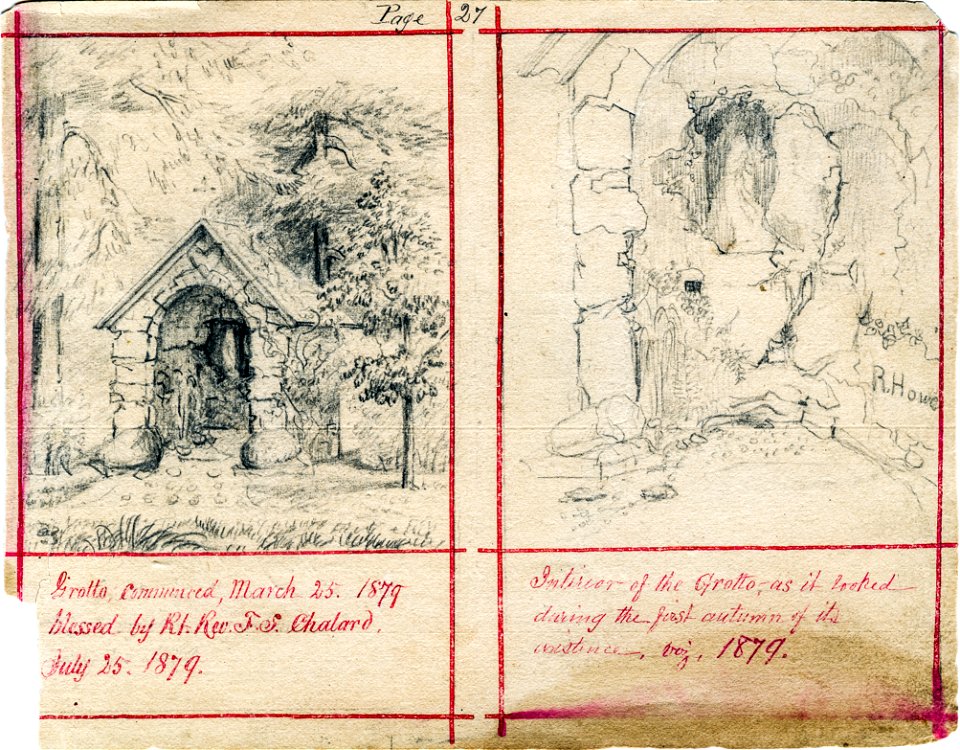 Page 27
R. Howe
Grotto, commenced, March 25. 1879
blessed by Rt. Rev. F. S. Chatard,
July 25. 1879.
Interior of the Grotto, as it looked
during the first autumn of its
existence, viz, 1879.